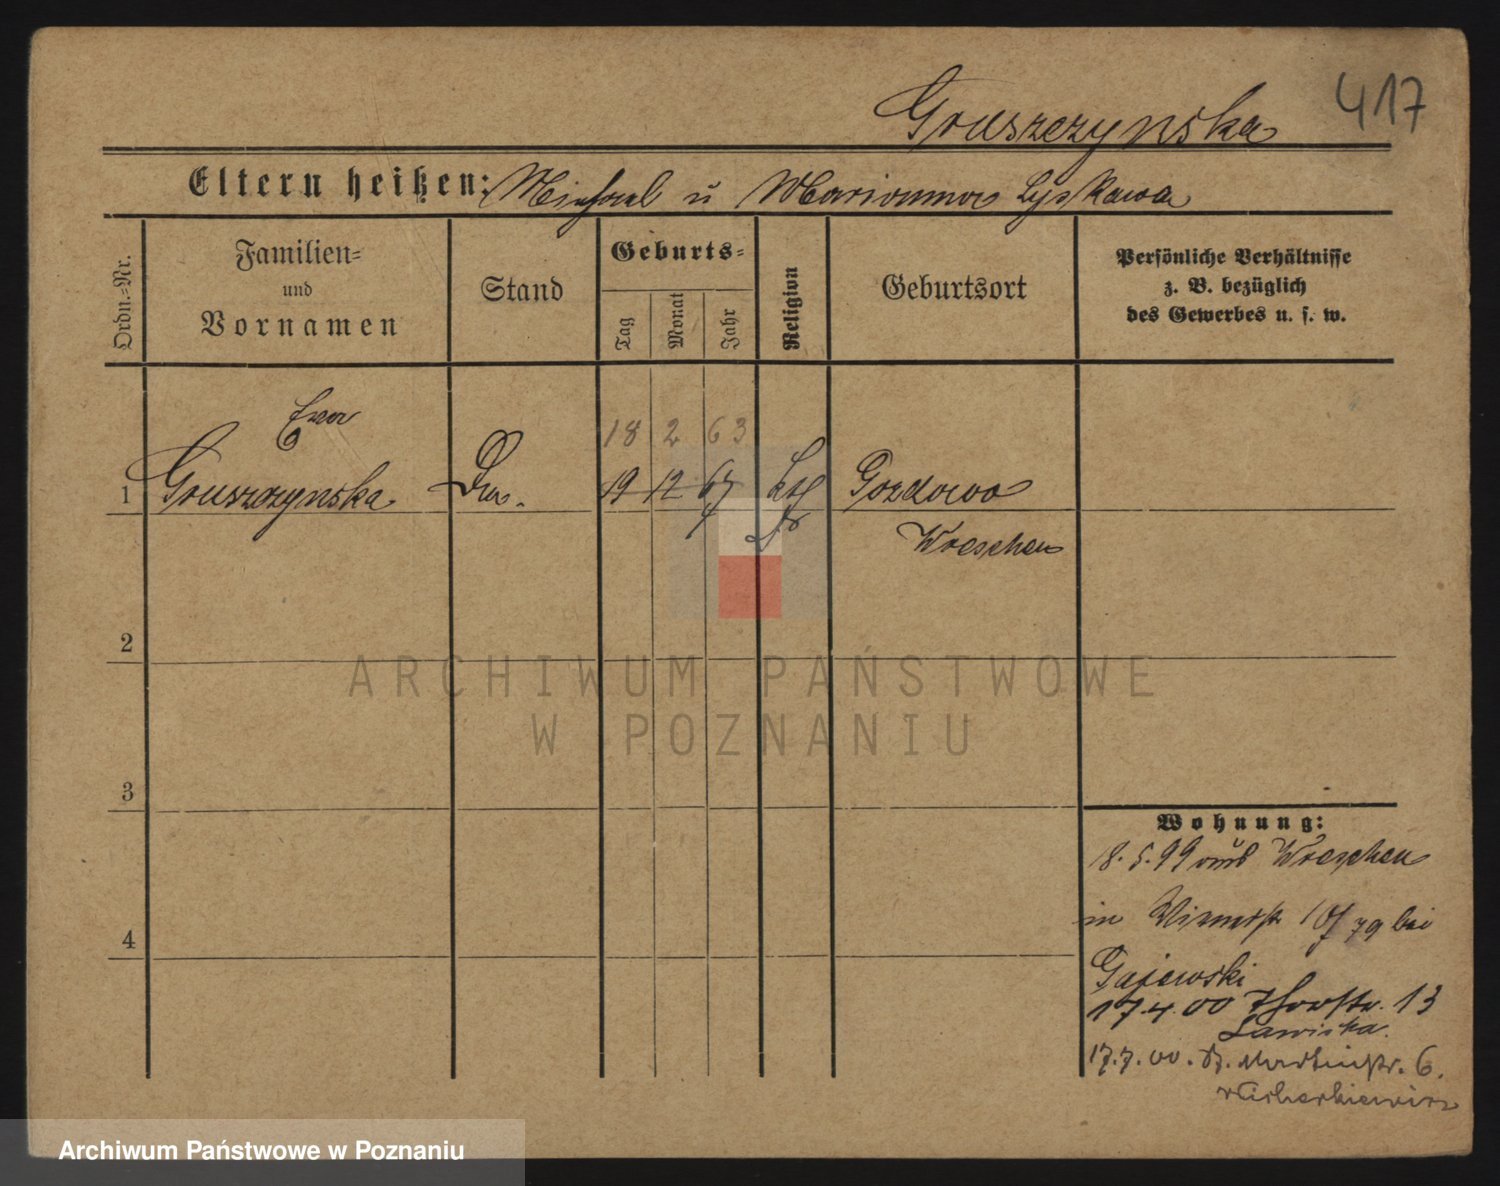 Gruszczynska 417
Eltern heißen: Michael u Marianna Lyskawa
Ordn.=Nr.
Familien=
und
Vornamen
Stand
Geburts=
Tag
Monat
Jahr
Religion
Geburtsort
Persönliche Verhältnisse
z. B. bezüglich
des Gewerbes u. s. w.
Ewa
18 2 63
1 Gruszczynska 19 12 67 kth Gozdowo
Wreschen
2
3
4
Wohnung:
8.5.99 aus Wreschen
in 79 bei
Gajewski
17.4.00 Thorstr. 13
Lawicka.
17.7.00. St. Martinstr. 6.
ARCHIWUM PAŃSTWOWE
W POZNANIU
Archiwum Państwowe w Poznaniu